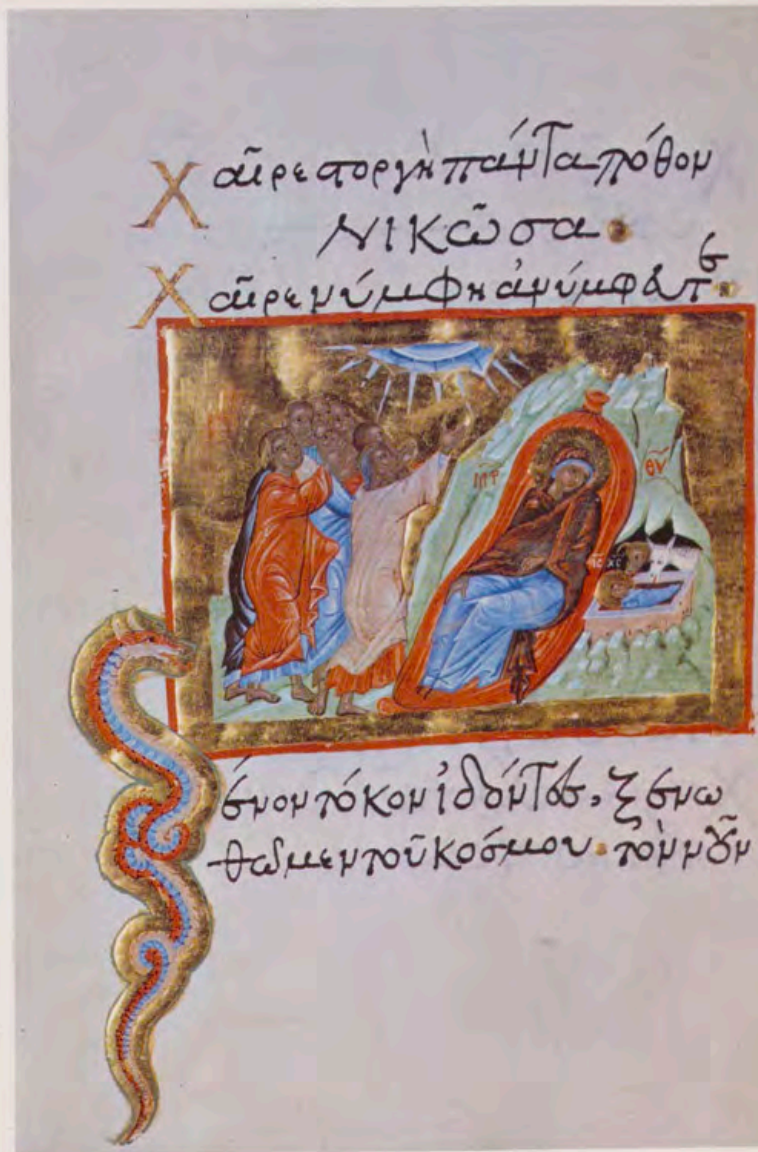 Χαῖρε στοργὴ πάντα πόθον
ΝΙΚῶσα·
Χαῖρε νύμφη ἀνύμφευτε·
ΜΗΡ ΘΥ
ΙC ΧC
Ξένον τόκον ἰδόντες, ξενω
θῶμεν τοῦ κόσμου· τὸν νοῦν